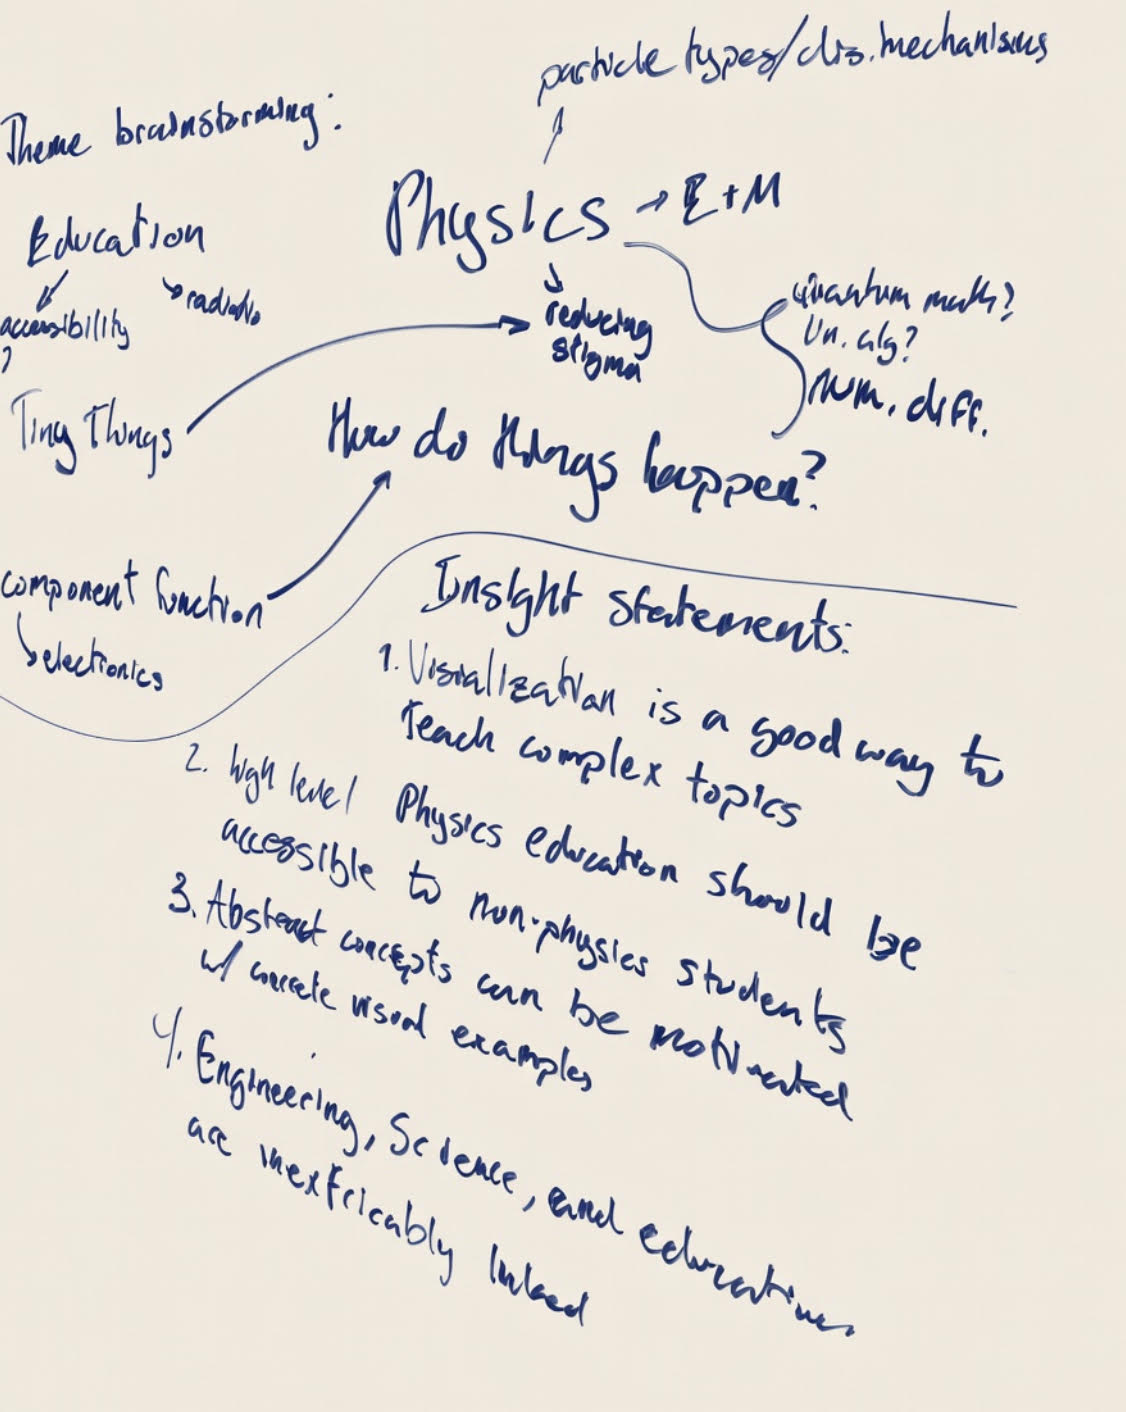 particle types/dis. mechanisms
Theme brainstorming:
Physics → E+M
Education
accessibility
?
quantum math?
Lin. alg?
num. diff.
reducing
stigma
Tiny Things
How do things happen?
component function
electronics
Insight statements:
1. Visualization is a good way to
teach complex topics
2. high level Physics education should be
accessible to non-physics students
3. Abstract concepts can be motivated
w/ concrete visual examples
4. Engineering, Science, and education
are inextricably linked